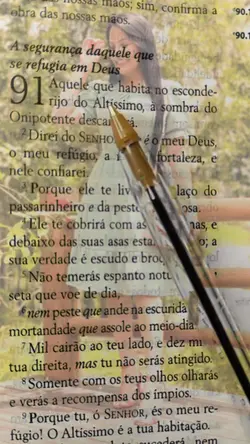 nossas mãos; sim, confirma a
obra das nossas mãos.
*90.1
*90.
A segurança daquele que
se refugia em Deus
91 Aquele que habita no esconde-
rijo do Altíssimo, à sombra do
Onipotente
2 Direi do SENHOR é o meu Deus,
o meu refúgio, a fortaleza, e
nele confiarei.
3 Porque ele te laço do
passarinheiro e da
4 Ele te cobrirá com as
debaixo das suas asas a
sua verdade é escudo e
5 Não temerás espanto
seta que voe de dia,
6 nem peste que ande na
mortandade que assole ao meio-dia.
7 Mil cairão ao teu lado, e dez mi
tua direita, mas tu não serás atingido.
8 Somente com os teus olhos olharás
e verás a recompensa dos ímpios.
9 Porque tu, ó SENHOR, és o meu re-
fúgio! O Altíssimo é a tua habitação.